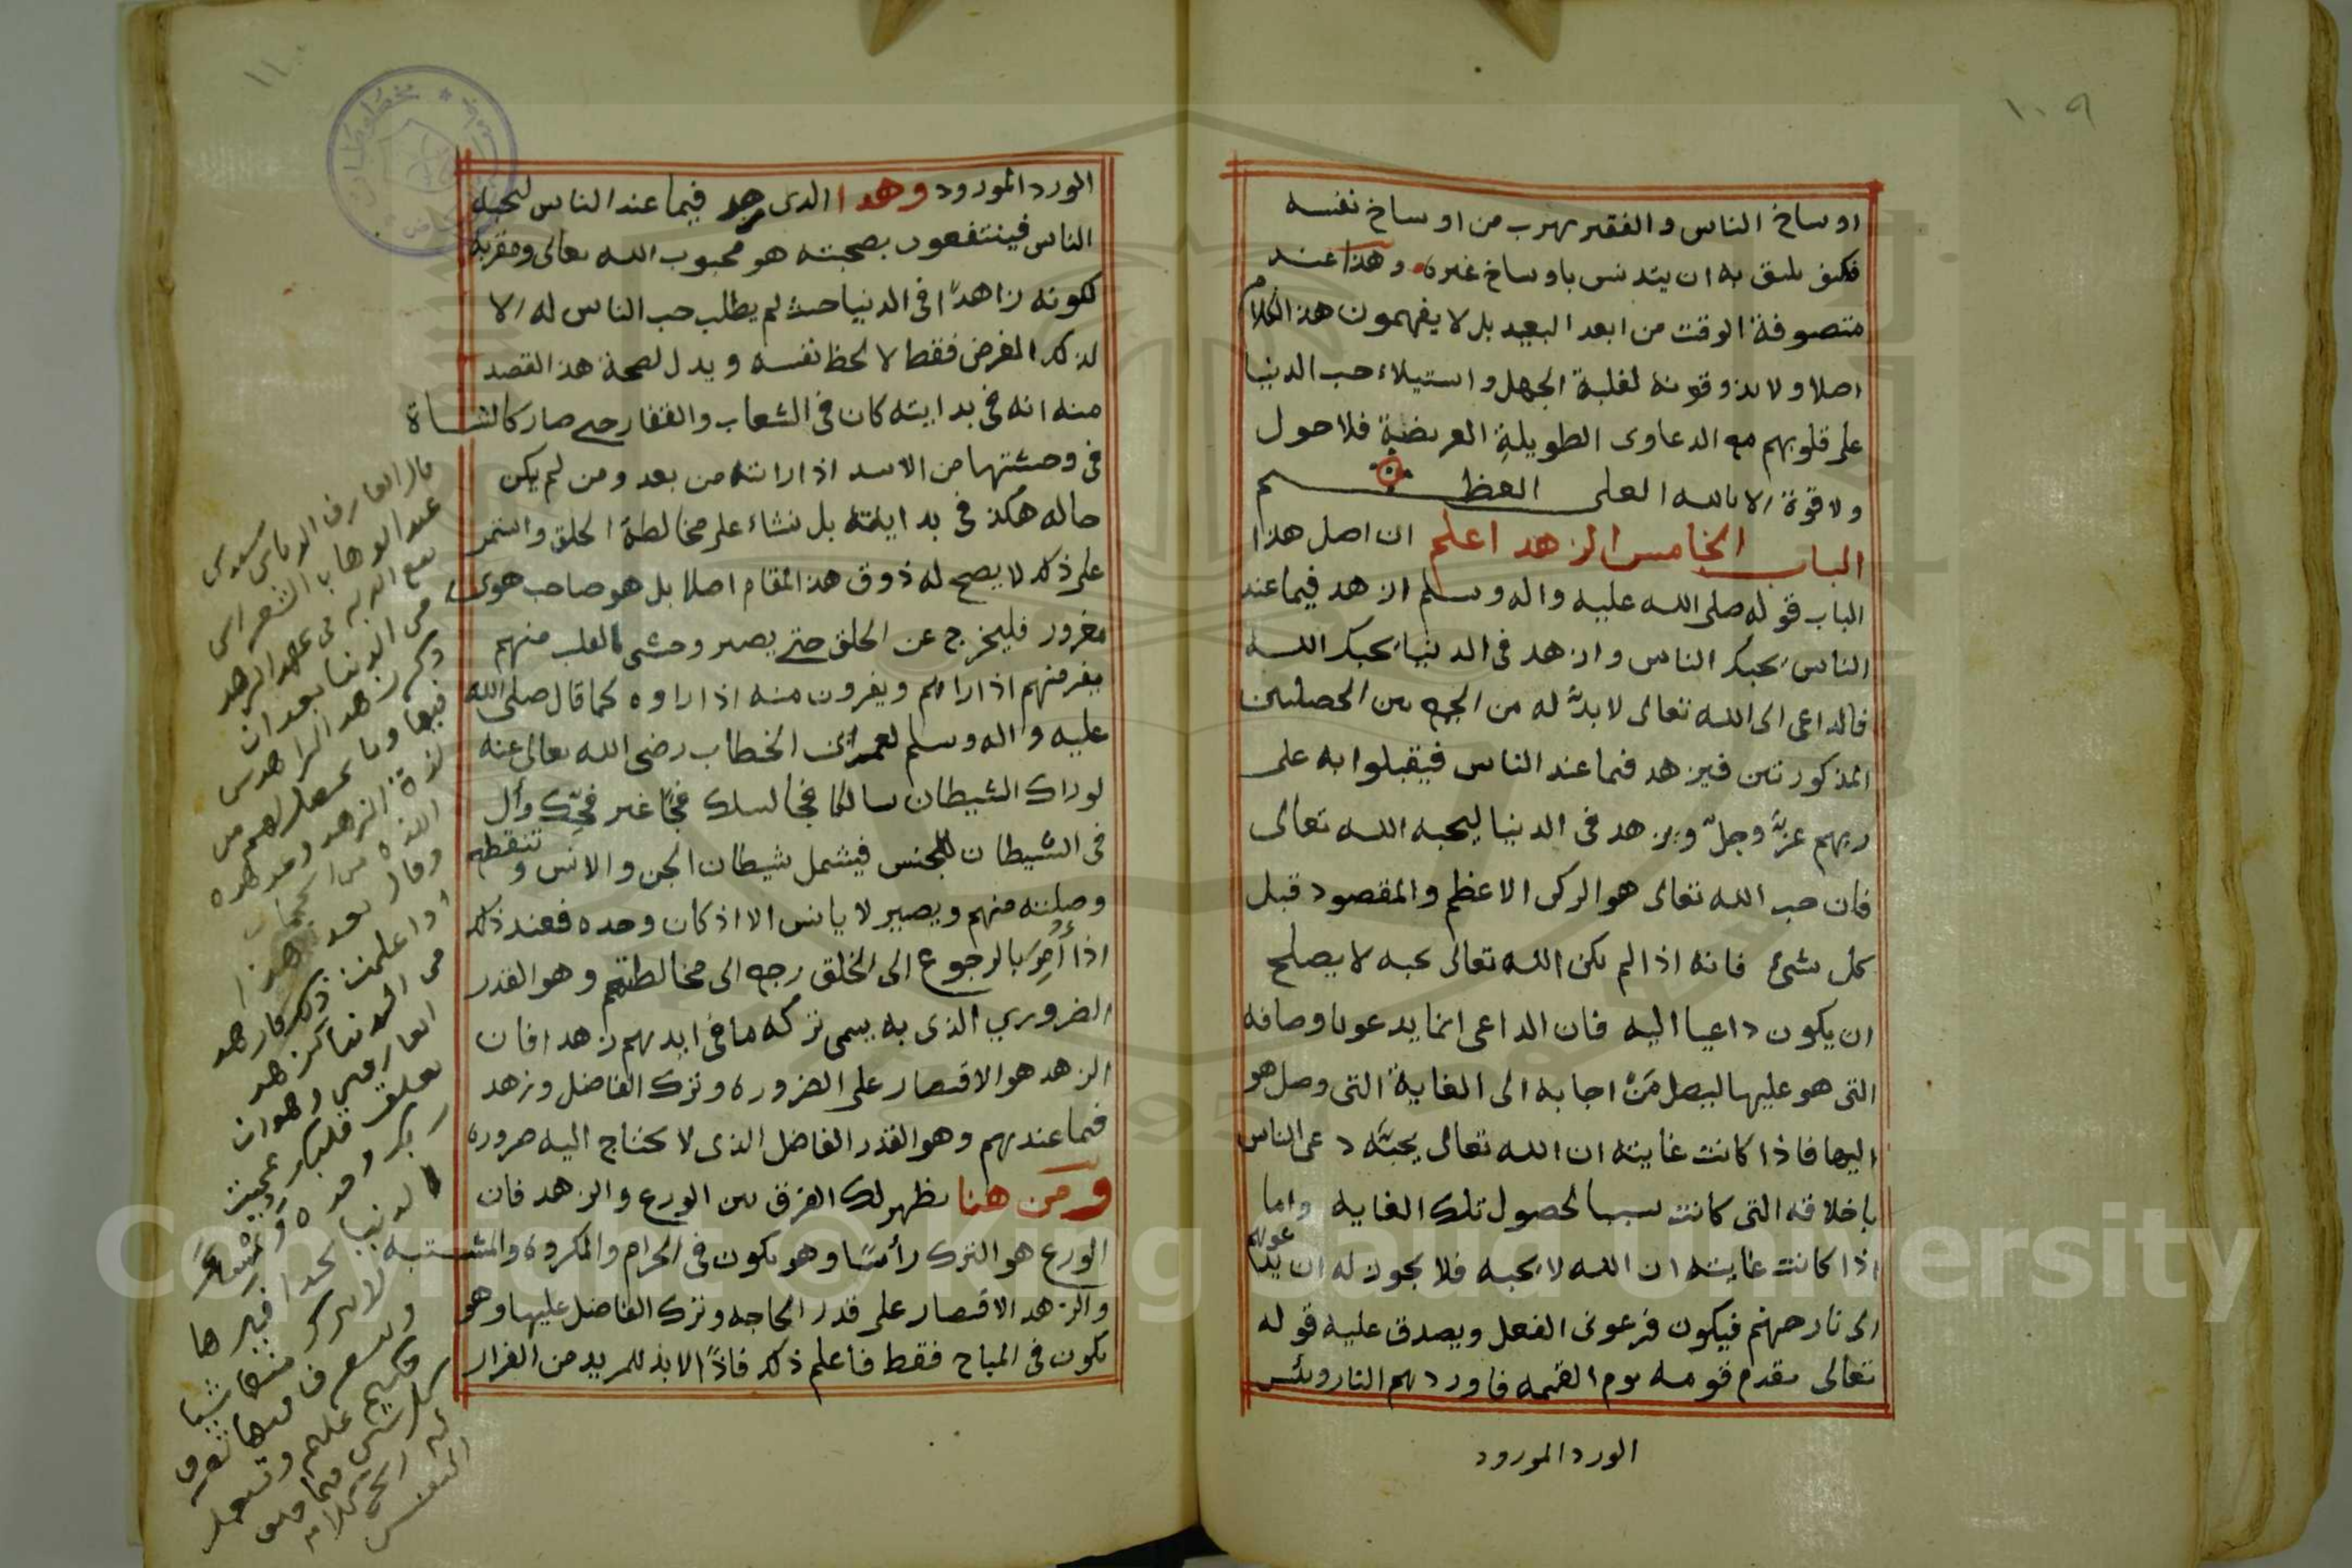 ١٠٩
اوساخ الناس والفقير يهرب من اوساخ نفسه
فكيف يليق به ان يتدنس باوساخ غيره وهذا عند
متصوفة الوقت من ابعد البعيد بل لا يفهمون هذا الكلام
اصلا ولا يذوقونه لغلبة الجهل واستيلاء حب الدنيا
على قلوبهم مع الدعاوى الطويلة العريضة فلا حول
ولا قوة الا بالله العلى العظيم
الباب الخامس الزهد اعلم ان اصل هذا
الباب قوله صلى الله عليه واله وسلم ازهد فيما عند
الناس يحبك الناس وازهد فى الدنيا يحبك الله
فالداعى الى الله تعالى لا بدّ له من الجمع بين الخصلتين
المذكورتين فيزهد فيما عند الناس فيقبلوا به على
ربهم عزّ وجلّ ويزهد فى الدنيا ليحبه الله تعالى
فان حب الله تعالى هو الركن الاعظم والمقصود قبل
كل شئ فانه اذا لم يكن الله تعالى يحبه لا يصلح
ان يكون داعيا اليه فان الداعى انما يدعو باوصافه
التى هو عليها ليصل مَنْ اجابه الى الغاية التى وصل هو
اليها فاذا كانت غايته ان الله تعالى يحبّه دعى الناس
باخلاقه التى كانت سببا لحصول تلك الغايه واما
اذا كانت غايته ان الله لا يحبه فلا يجوز له ان يدعوهم
الى نار جهنم فيكون فرعونى الفعل ويصدق عليه قوله
تعالى يقدم قومه يوم القيمه فاوردهم النار وبئس
الورد المورود
١١٠
الورد المورود وهذا الذى زهد فيما عند الناس ليحبه
الناس فينتفعون بصحبته هو محبوب الله تعالى ومقربه
لكونه زاهدًا فى الدنيا حيث لم يطلب حب الناس له الا
لذلك الغرض فقط لا لحظ نفسه ويدل لصحة هذا القصد
منه انه فى بدايته كان فى الشعاب والقفار حتى صار كالشاة
فى وحشتها من الاسد اذا راته من بعد ومن لم يكن
حاله هكذا فى بدايته بل نشاء على مخالطة الخلق واستمر
على ذلك لا يصح له ذوق هذا المقام اصلا بل هو صاحب هوى
مغرور فليخرج عن الخلق حتى يصير وحشى القلب منهم
يفر منهم اذا راهم ويفرون منه اذا راوه كما قال صلى الله
عليه واله وسلم لعمر بن الخطاب رضى الله تعالى عنه
لو راك الشيطان سالكا فجا لسلك فجًا غير فجّك وأل
فى الشيطان للجنس فيشمل شيطان الجن والانس وتنقطع
وصلته منهم ويصير لا يانس الا اذ كان وحده فعند ذلك
اذا أُمِرَ بالرجوع الى الخلق رجع الى مخالطتهم وهو القدر
الضروري الذى به يسمى تركه ما فى ايديهم زهدا فان
الزهد هو الاقتصار على الضروره وترك الفاضل وزهد
فيما عندهم وهو القدر الفاضل الذى لا يحتاج اليه ضرورة
ومن هنا يظهر لك الفرق بين الورع والزهد فان
الورع هو الترك رأسًا وهو يكون فى الحرام والمكروه والمشتبه
والزهد الاقتصار على قدر الحاجه وترك الفاضل عليها وهو
يكون فى المباح فقط فاعلم ذلك فاذًا لا بد للمريد من الفرار
قال العارف الربانى سيدى
عبد الوهاب الشعرانى
الزهد
فى الدنيا بعد ان
ذكر زهد الزاهدين
فيها وما يحصل لهم من
لذة الزهد
وقال بعد هذا
اذا علمت ذلك فازهد
فى الدنيا كزهد
العارفين وهو ان
تعلق قلبك بمحبة
ربك وحده
الدنيا بحذافيرها
لا تترك منها شيا
Copyright © King Saud University
1957